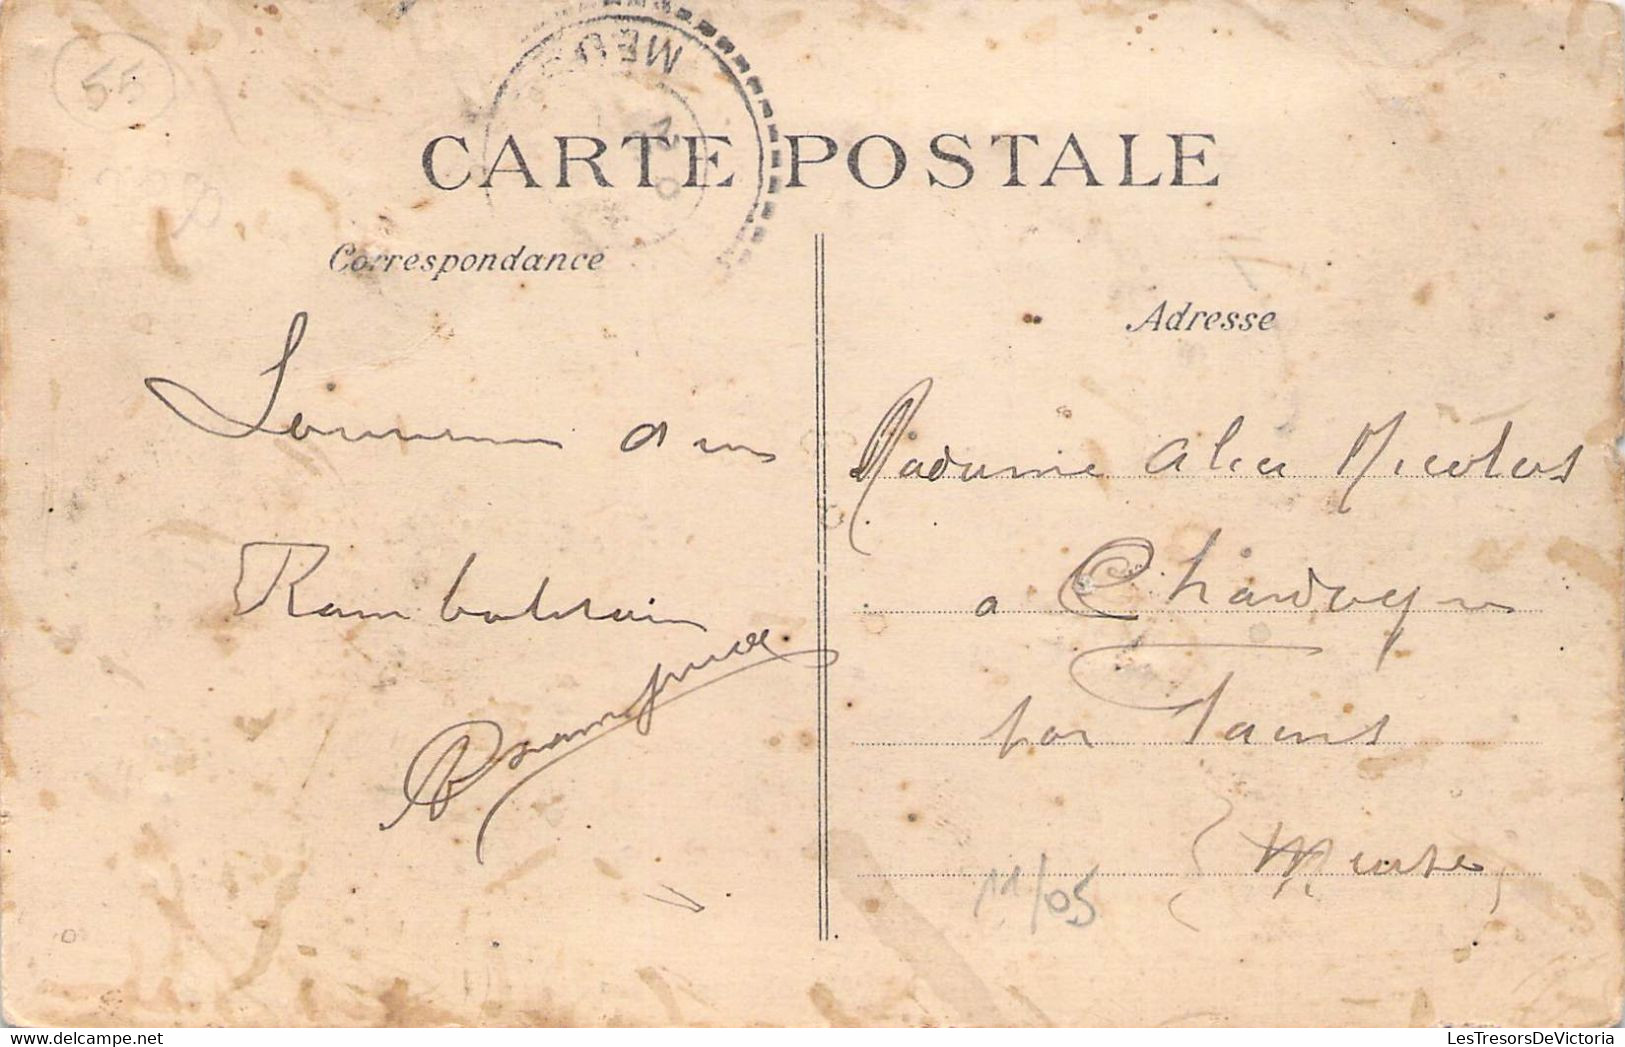 55
MEUSE
CARTE POSTALE
Correspondance
Adresse
Souvenir d'un
Rambaldusien
Madame Alex Nicolas
a Chardogne
par Vavincourt
(Meuse)
11/05
LesTresorsDeVictoria